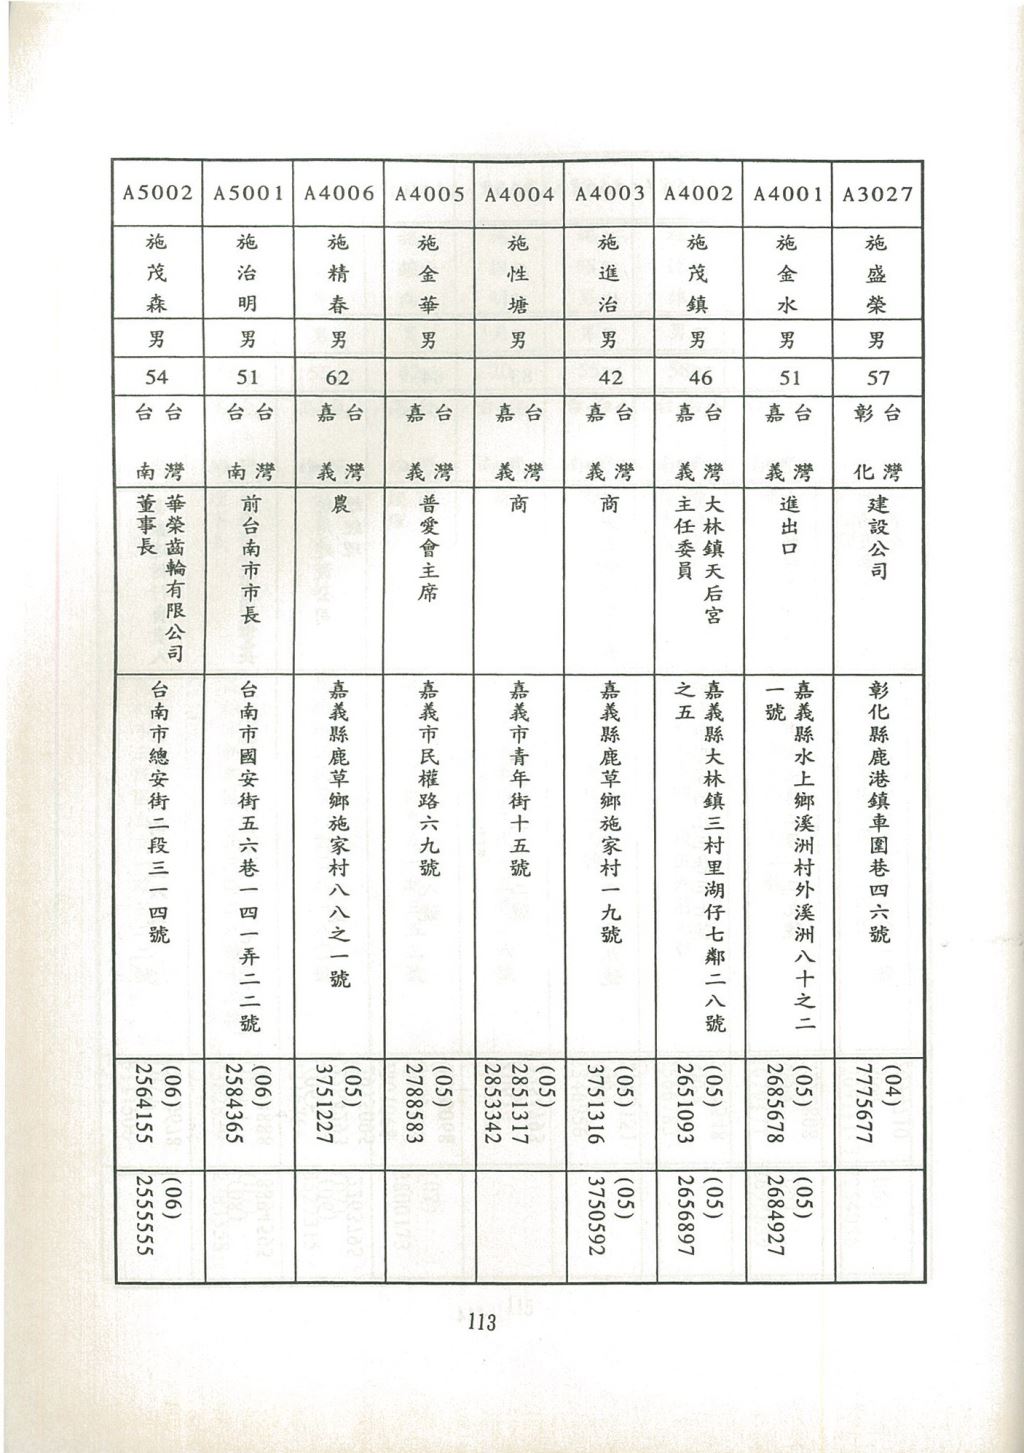 A3027
施盛榮
男
57
台灣
彰化
建設公司
彰化縣鹿港鎮車圍巷四六號
(04)
7775677
A4001
施金水
男
51
台灣
嘉義
進出口
嘉義縣水上鄉溪洲村外溪洲八十之二
一號
(05)
2685678
(05)
2684927
A4002
施茂鎮
男
46
台灣
嘉義
大林鎮天后宮
主任委員
嘉義縣大林鎮三村里湖仔七鄰二八號
之五
(05)
2651093
(05)
2656897
A4003
施進治
男
42
台灣
嘉義
商
嘉義縣鹿草鄉施家村一九號
(05)
3751316
(05)
3750592
A4004
施性塘
男
台灣
嘉義
商
嘉義市青年街十五號
(05)
2851317
2853342
A4005
施金華
男
台灣
嘉義
普愛會主席
嘉義市民權路六九號
(05)
2788583
A4006
施精春
男
62
台灣
嘉義
農
嘉義縣鹿草鄉施家村八八之一號
(05)
3751227
A5001
施治明
男
51
台灣
台南
前台南市市長
台南市國安街五六巷一四一弄二二號
(06)
2584365
A5002
施茂森
男
54
台灣
台南
華榮齒輪有限公司
董事長
台南市總安街二段三一四號
(06)
2564155
(06)
2555555
113